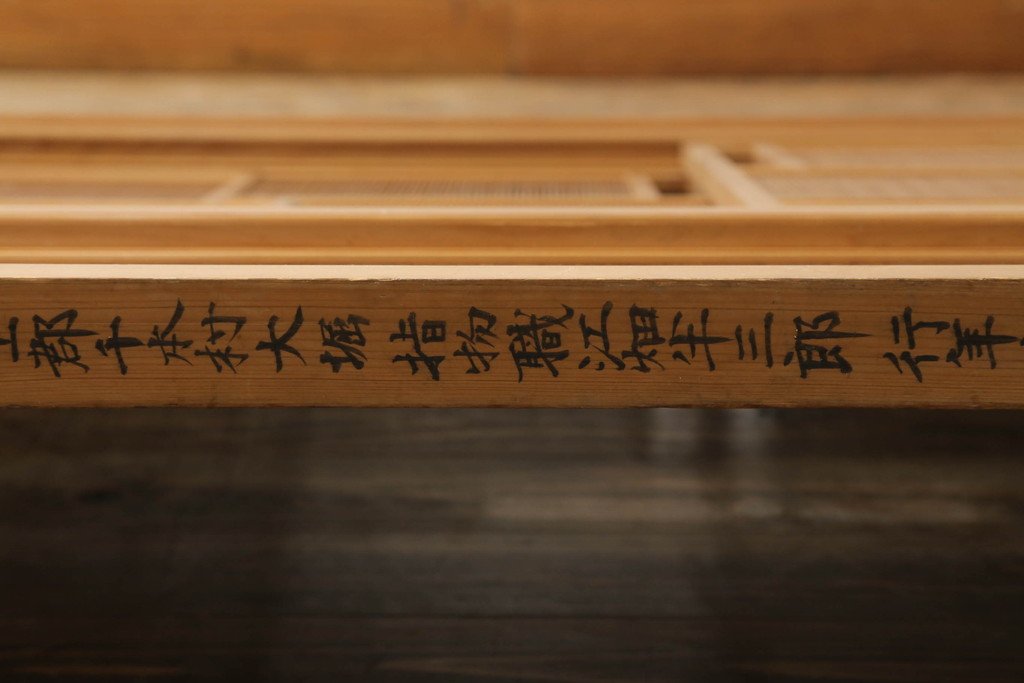 郡千本村大堀 指物職江畑半三郎 行年